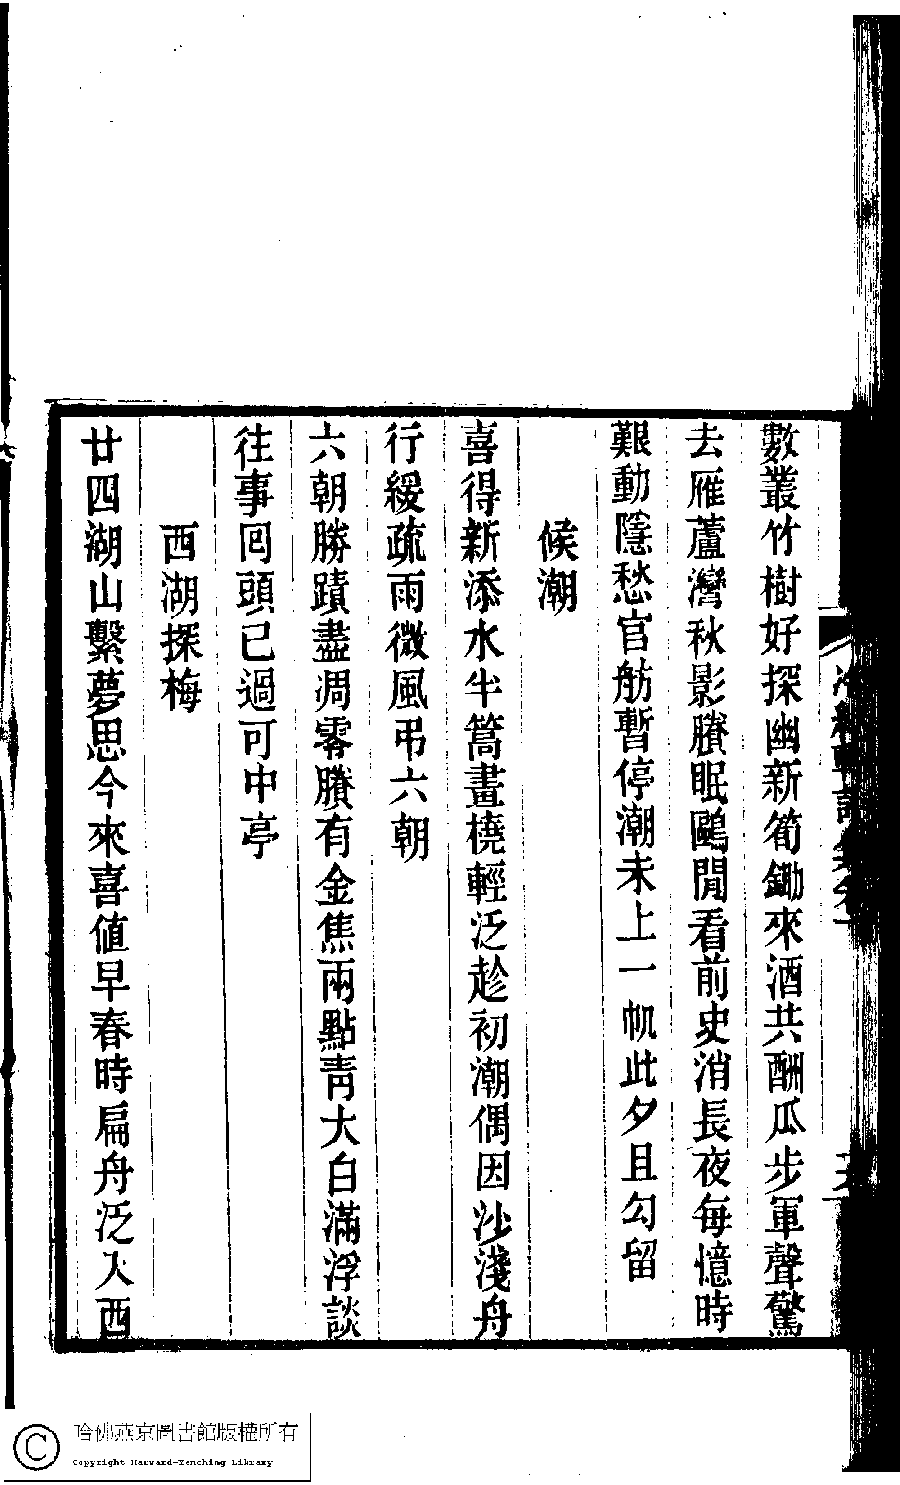 數叢竹樹好探幽新筍鋤來酒共酬瓜步軍聲驚
去雁蘆灣秋影賸眠鷗閒看前史消長夜每憶時
艱動隱愁官舫暫停潮未上一帆此夕且勾留
候潮
喜得新添水半篙畫橈輕泛趁初潮偶因沙淺舟
行緩疏雨微風弔六朝
六朝勝蹟盡凋零賸有金焦兩點靑大白滿浮談
往事回頭已過可中亭
西湖探梅
廿四湖山繫夢思今來喜値早春時扁舟泛入西
哈佛燕京圖書館版權所有
Copyright Harvard-Yenching Library